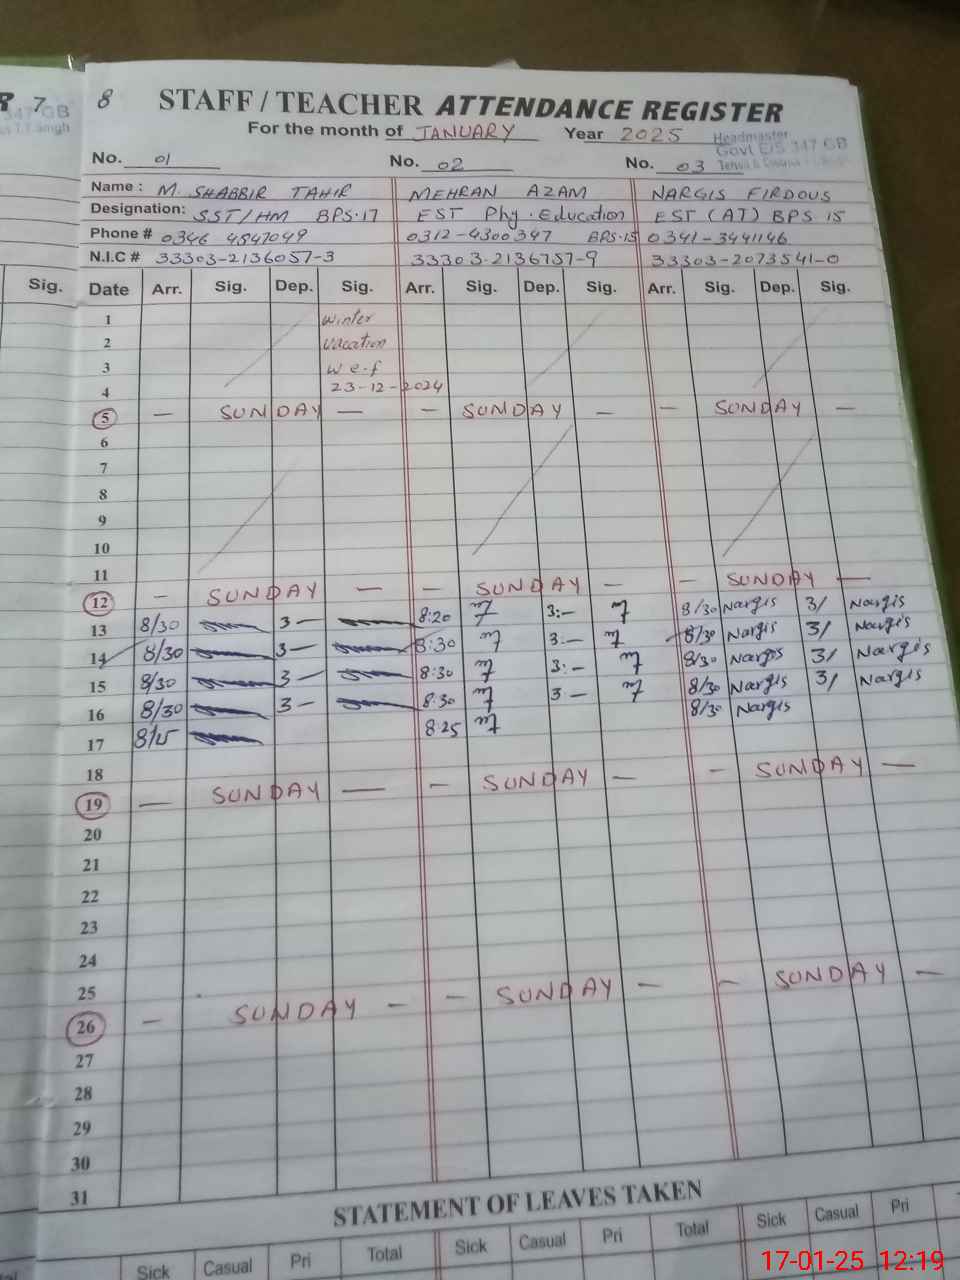 R 7 8 STAFF / TEACHER ATTENDANCE REGISTER
347 GB
For the month of JANUARY Year 2025 Headmaster
Govt E/S 347 GB
No. 01 No. 02 No. 03
Name : M. SHABBIR TAHIR MEHRAN AZAM NARGIS FIRDOUS
Designation: SST/HM BPS.17 EST Phy. Education EST (AT) BPS 15
Phone # 0346 4847049 0312-4300347 BPS.15 0341-3441146
N.I.C # 33303-2136057-3 33303.2136757-9 33303-2073541-0
Sig. Date Arr. Sig. Dep. Sig. Arr. Sig. Dep. Sig. Arr. Sig. Dep. Sig.
1 Winter
2 vacation
3 w.e.f
4 23-12-2024
5 — SUNDAY — — SUNDAY — — SUNDAY —
6
7
8
9
10
11
12 — SUNDAY — — SUNDAY — — SUNDAY —
13 8/30 3— 8:20 3:— 8/30 Nargis 3/ Nargis
14 8/30 3— 8:30 3:— 8/30 Nargis 3/ Nargis
15 8/30 3— 8:30 3:— 8/30 Nargis 3/ Nargis
16 8/30 3— 8:30 3— 8/30 Nargis 3/ Nargis
17 8/15 8:25 8/30 Nargis
18
19 — SUNDAY — — SUNDAY — — SUNDAY —
20
21
22
23
24
25
26 — SUNDAY — — SUNDAY — — SUNDAY —
27
28
29
30
31
STATEMENT OF LEAVES TAKEN
Sick Casual Pri Total Sick Casual Pri Total Sick Casual Pri
17-01-25 12:19